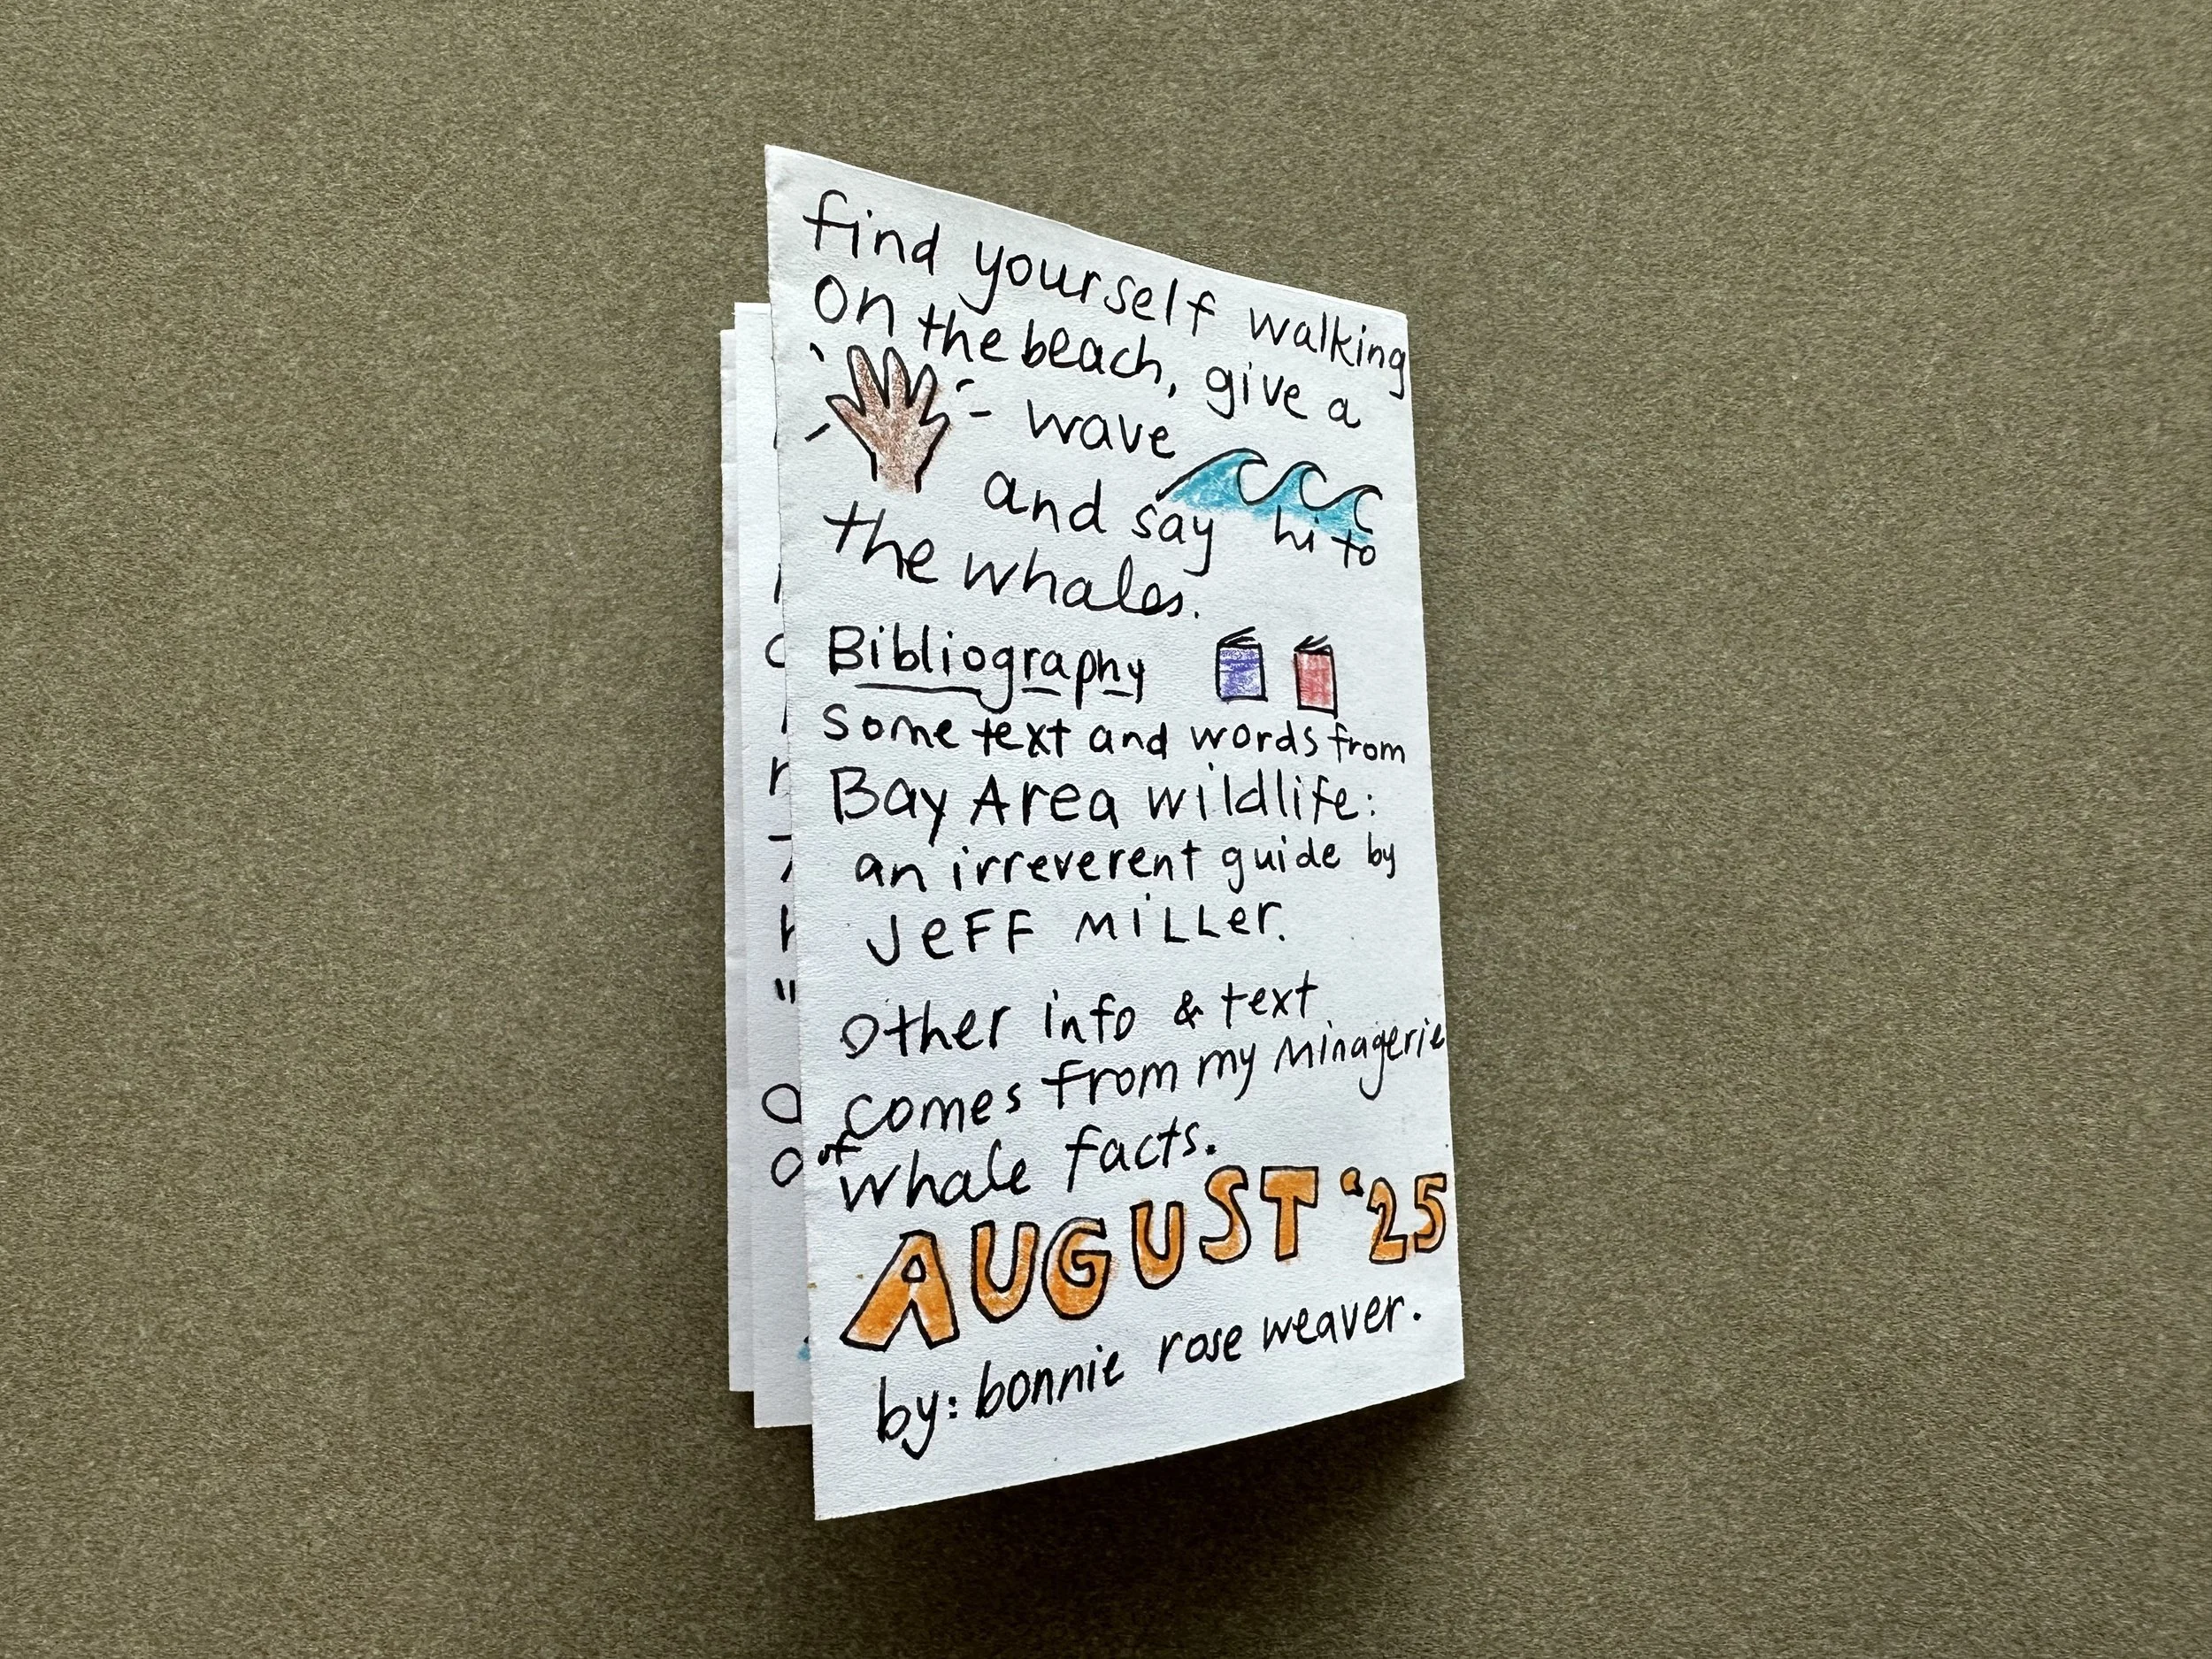 find yourself walking
on the beach, give a
wave
and say hi to
the whales.
Bibliography
some text and words from
Bay Area wildlife:
an irreverent guide by
JeFF MiLLer.
Other info & text
comes from my Minagerie
of
whale facts.
AUGUST '25
by: bonnie rose weaver.